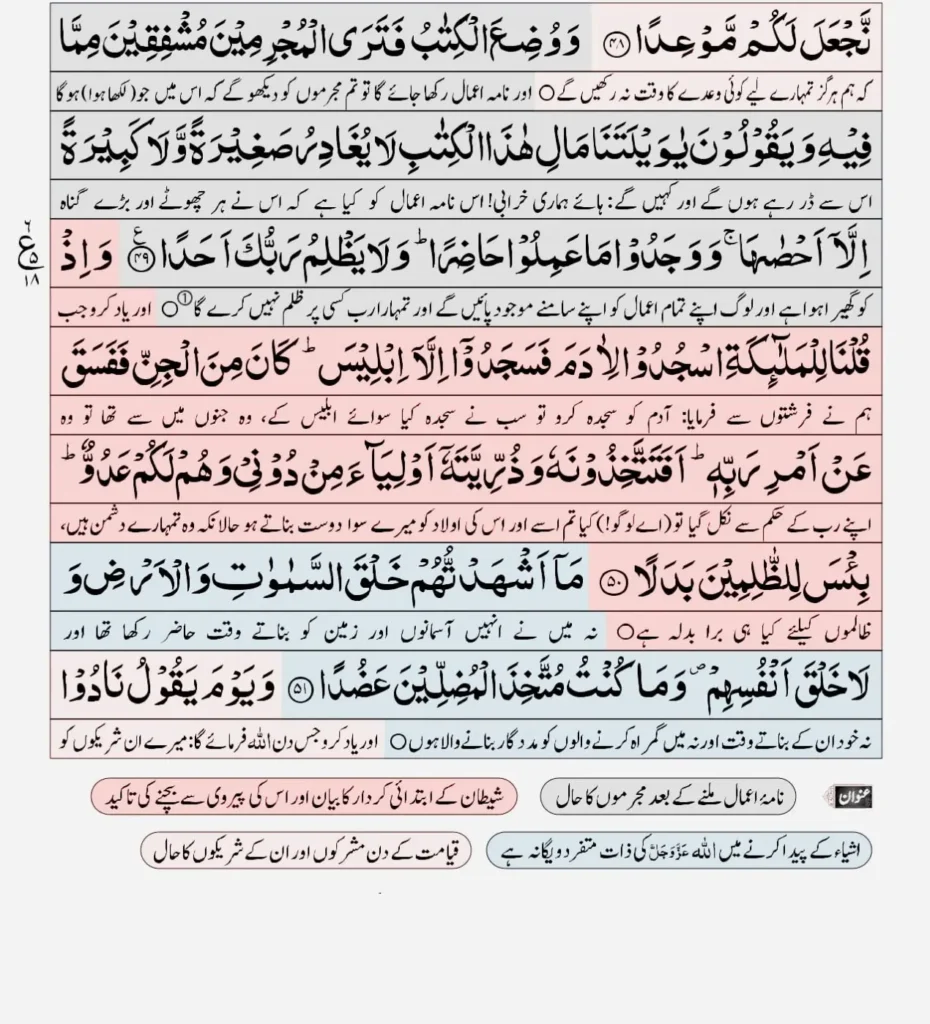 نَّجْعَلَ لَكُمْ مَّوْعِدًا ﴿۴۸﴾ وَوُضِعَ الْكِتٰبُ فَتَرَى الْمُجْرِمِيْنَ مُشْفِقِيْنَ مِمَّا
کہ ہم ہرگز تمہارے لیے کوئی وعدے کا وقت نہ رکھیں گے ○ اور نامہ اعمال رکھا جائے گا تو تم مجرموں کو دیکھو گے کہ اس میں جو (لکھا ہوا) ہوگا
فِيْهِ وَيَقُوْلُوْنَ يٰوَيْلَتَنَا مَالِ هٰذَا الْكِتٰبِ لَا يُغَادِرُ صَغِيْرَةً وَّلَا كَبِيْرَةً
اس سے ڈر رہے ہوں گے اور کہیں گے: ہائے ہماری خرابی! اس نامہ اعمال کو کیا ہے کہ اس نے ہر چھوٹے اور بڑے گناہ
اِلَّاۤ اَحْصٰىهَا ۚ وَوَجَدُوْا مَا عَمِلُوْا حَاضِرًا ؕ وَلَا يَظْلِمُ رَبُّكَ اَحَدًا ﴿۴۹﴾ ع وَاِذْ
۲ ع ۵ ۱۸
کو گھیرا ہوا ہے اور لوگ اپنے تمام اعمال کو اپنے سامنے موجود پائیں گے اور تمہارا رب کسی پر ظلم نہیں کرے گا ① ○ اور یاد کرو جب
قُلْنَا لِلْمَلٰٓئِكَةِ اسْجُدُوْا لِاٰدَمَ فَسَجَدُوْۤا اِلَّاۤ اِبْلِيْسَ ؕ كَانَ مِنَ الْجِنِّ فَفَسَقَ
ہم نے فرشتوں سے فرمایا: آدم کو سجدہ کرو تو سب نے سجدہ کیا سوائے ابلیس کے، وہ جنوں میں سے تھا تو وہ
عَنْ اَمْرِ رَبِّهٖ ؕ اَفَتَتَّخِذُوْنَهٗ وَذُرِّيَّتَهٗۤ اَوْلِيَآءَ مِنْ دُوْنِيْ وَهُمْ لَكُمْ عَدُوٌّ ؕ
اپنے رب کے حکم سے نکل گیا تو (اے لوگو!) کیا تم اسے اور اس کی اولاد کو میرے سوا دوست بناتے ہو حالانکہ وہ تمہارے دشمن ہیں،
بِئْسَ لِلظّٰلِمِيْنَ بَدَلًا ﴿۵۰﴾ مَاۤ اَشْهَدْتُّهُمْ خَلْقَ السَّمٰوٰتِ وَالْاَرْضِ وَ
ظالموں کیلئے کیا ہی برا بدلہ ہے ○ نہ میں نے انہیں آسمانوں اور زمین کو بناتے وقت حاضر رکھا تھا اور
لَا خَلْقَ اَنْفُسِهِمْ ۪ وَمَا كُنْتُ مُتَّخِذَ الْمُضِلِّيْنَ عَضُدًا ﴿۵۱﴾ وَيَوْمَ يَقُوْلُ نَادُوْا
نہ خود ان کے بناتے وقت اور نہ میں گمراہ کرنے والوں کو مددگار بنانے والا ہوں ○ اور یاد کرو جس دن اللہ فرمائے گا: میرے ان شریکوں کو
عنوان نامۂ اعمال ملنے کے بعد مجرموں کا حال شیطان کے ابتدائی کردار کا بیان اور اس کی پیروی سے بچنے کی تاکید
اشیاء کے پیدا کرنے میں اللہ عَزَّوَجَلَّ کی ذات متفرد و یگانہ ہے قیامت کے دن مشرکوں اور ان کے شریکوں کا حال